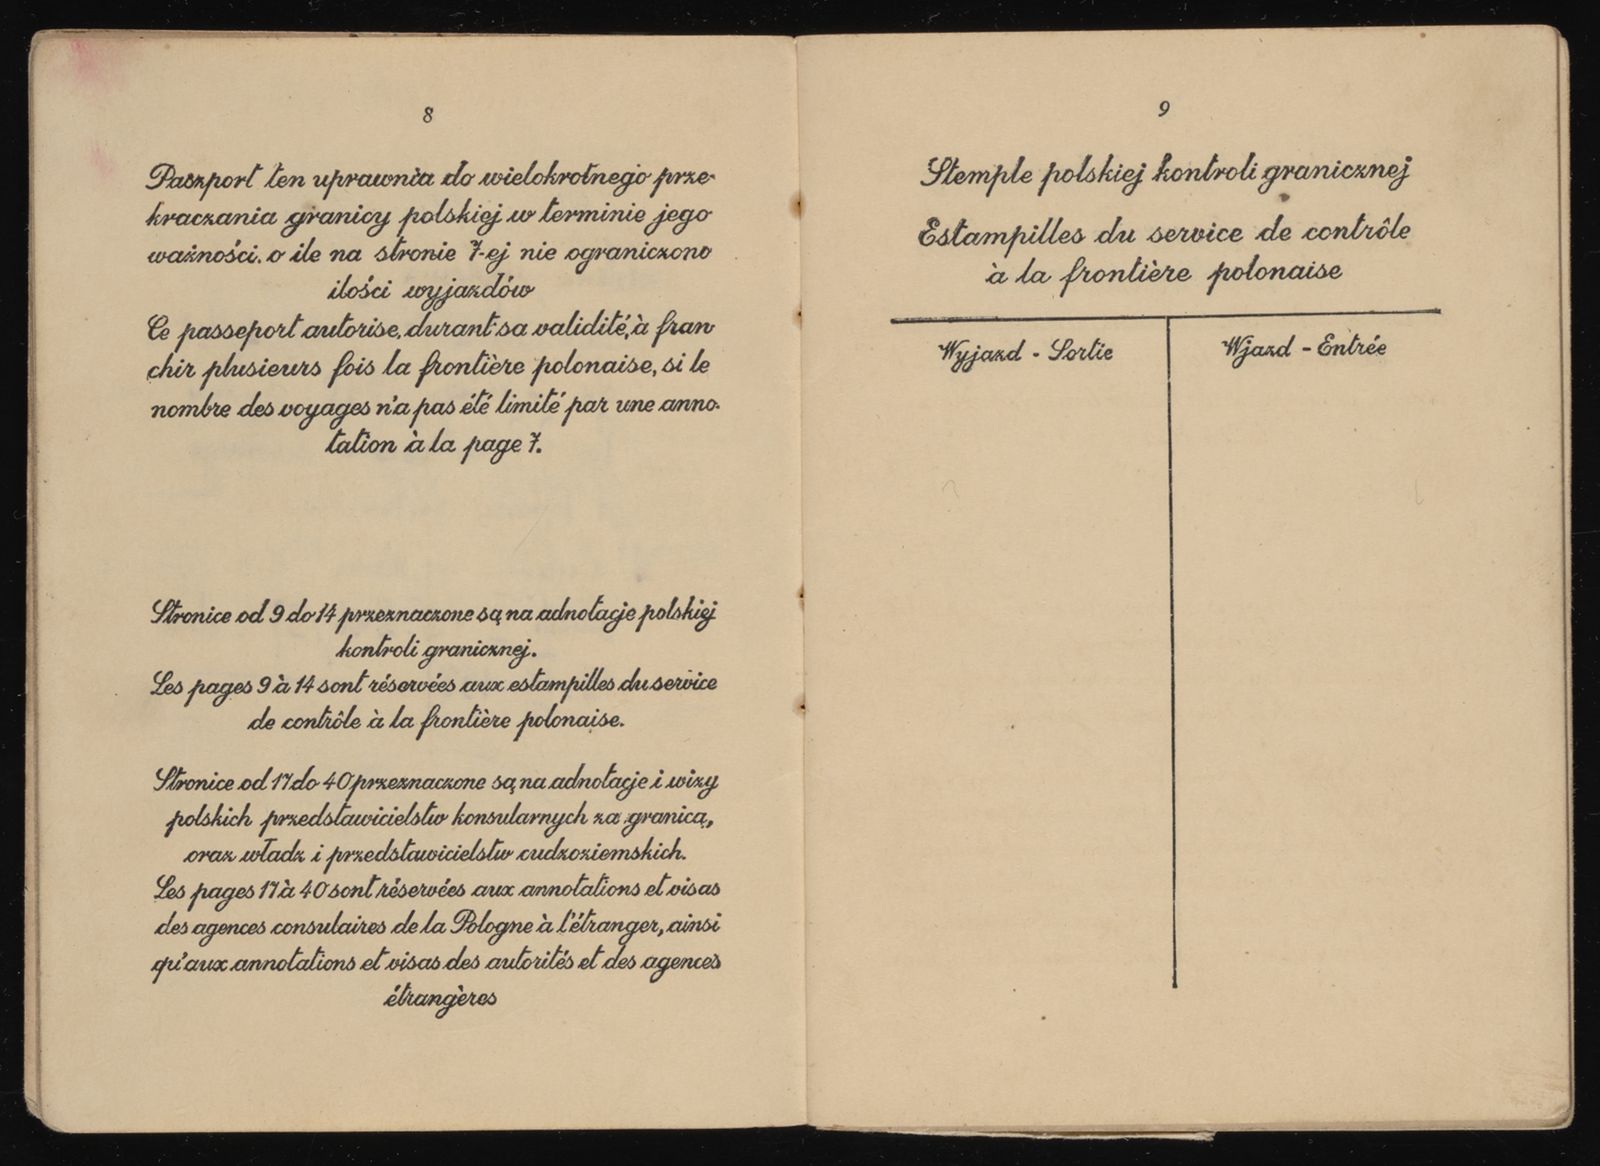 8
Paszport ten uprawnia do wielokrotnego prze-
kraczania granicy polskiej w terminie jego
ważności. o ile na stronie 7-ej nie ograniczono
ilości wyjazdów
Ce passeport autorise, durant sa validité, à fran
chir plusieurs fois la frontière polonaise, si le
nombre des voyages n'a pas été limité par une anno-
tation à la page 7.
Stronice od 9 do 14 przeznaczone są na adnotacje polskiej
kontroli granicznej.
Les pages 9 à 14 sont réservées aux estampilles du service
de contrôle à la frontière polonaise.
Stronice od 17 do 40 przeznaczone są na adnotacje i wizy
polskich przedstawicielstw konsularnych za granicą,
oraz władz i przedstawicielstw cudzoziemskich.
Les pages 17 à 40 sont réservées aux annotations et visas
des agences consulaires de la Pologne à l'étranger, ainsi
qu'aux annotations et visas des autorités et des agences
étrangères
9
Stemple polskiej kontroli granicznej
Estampilles du service de contrôle
à la frontière polonaise
Wyjazd - Sortie
Wjazd - Entrée